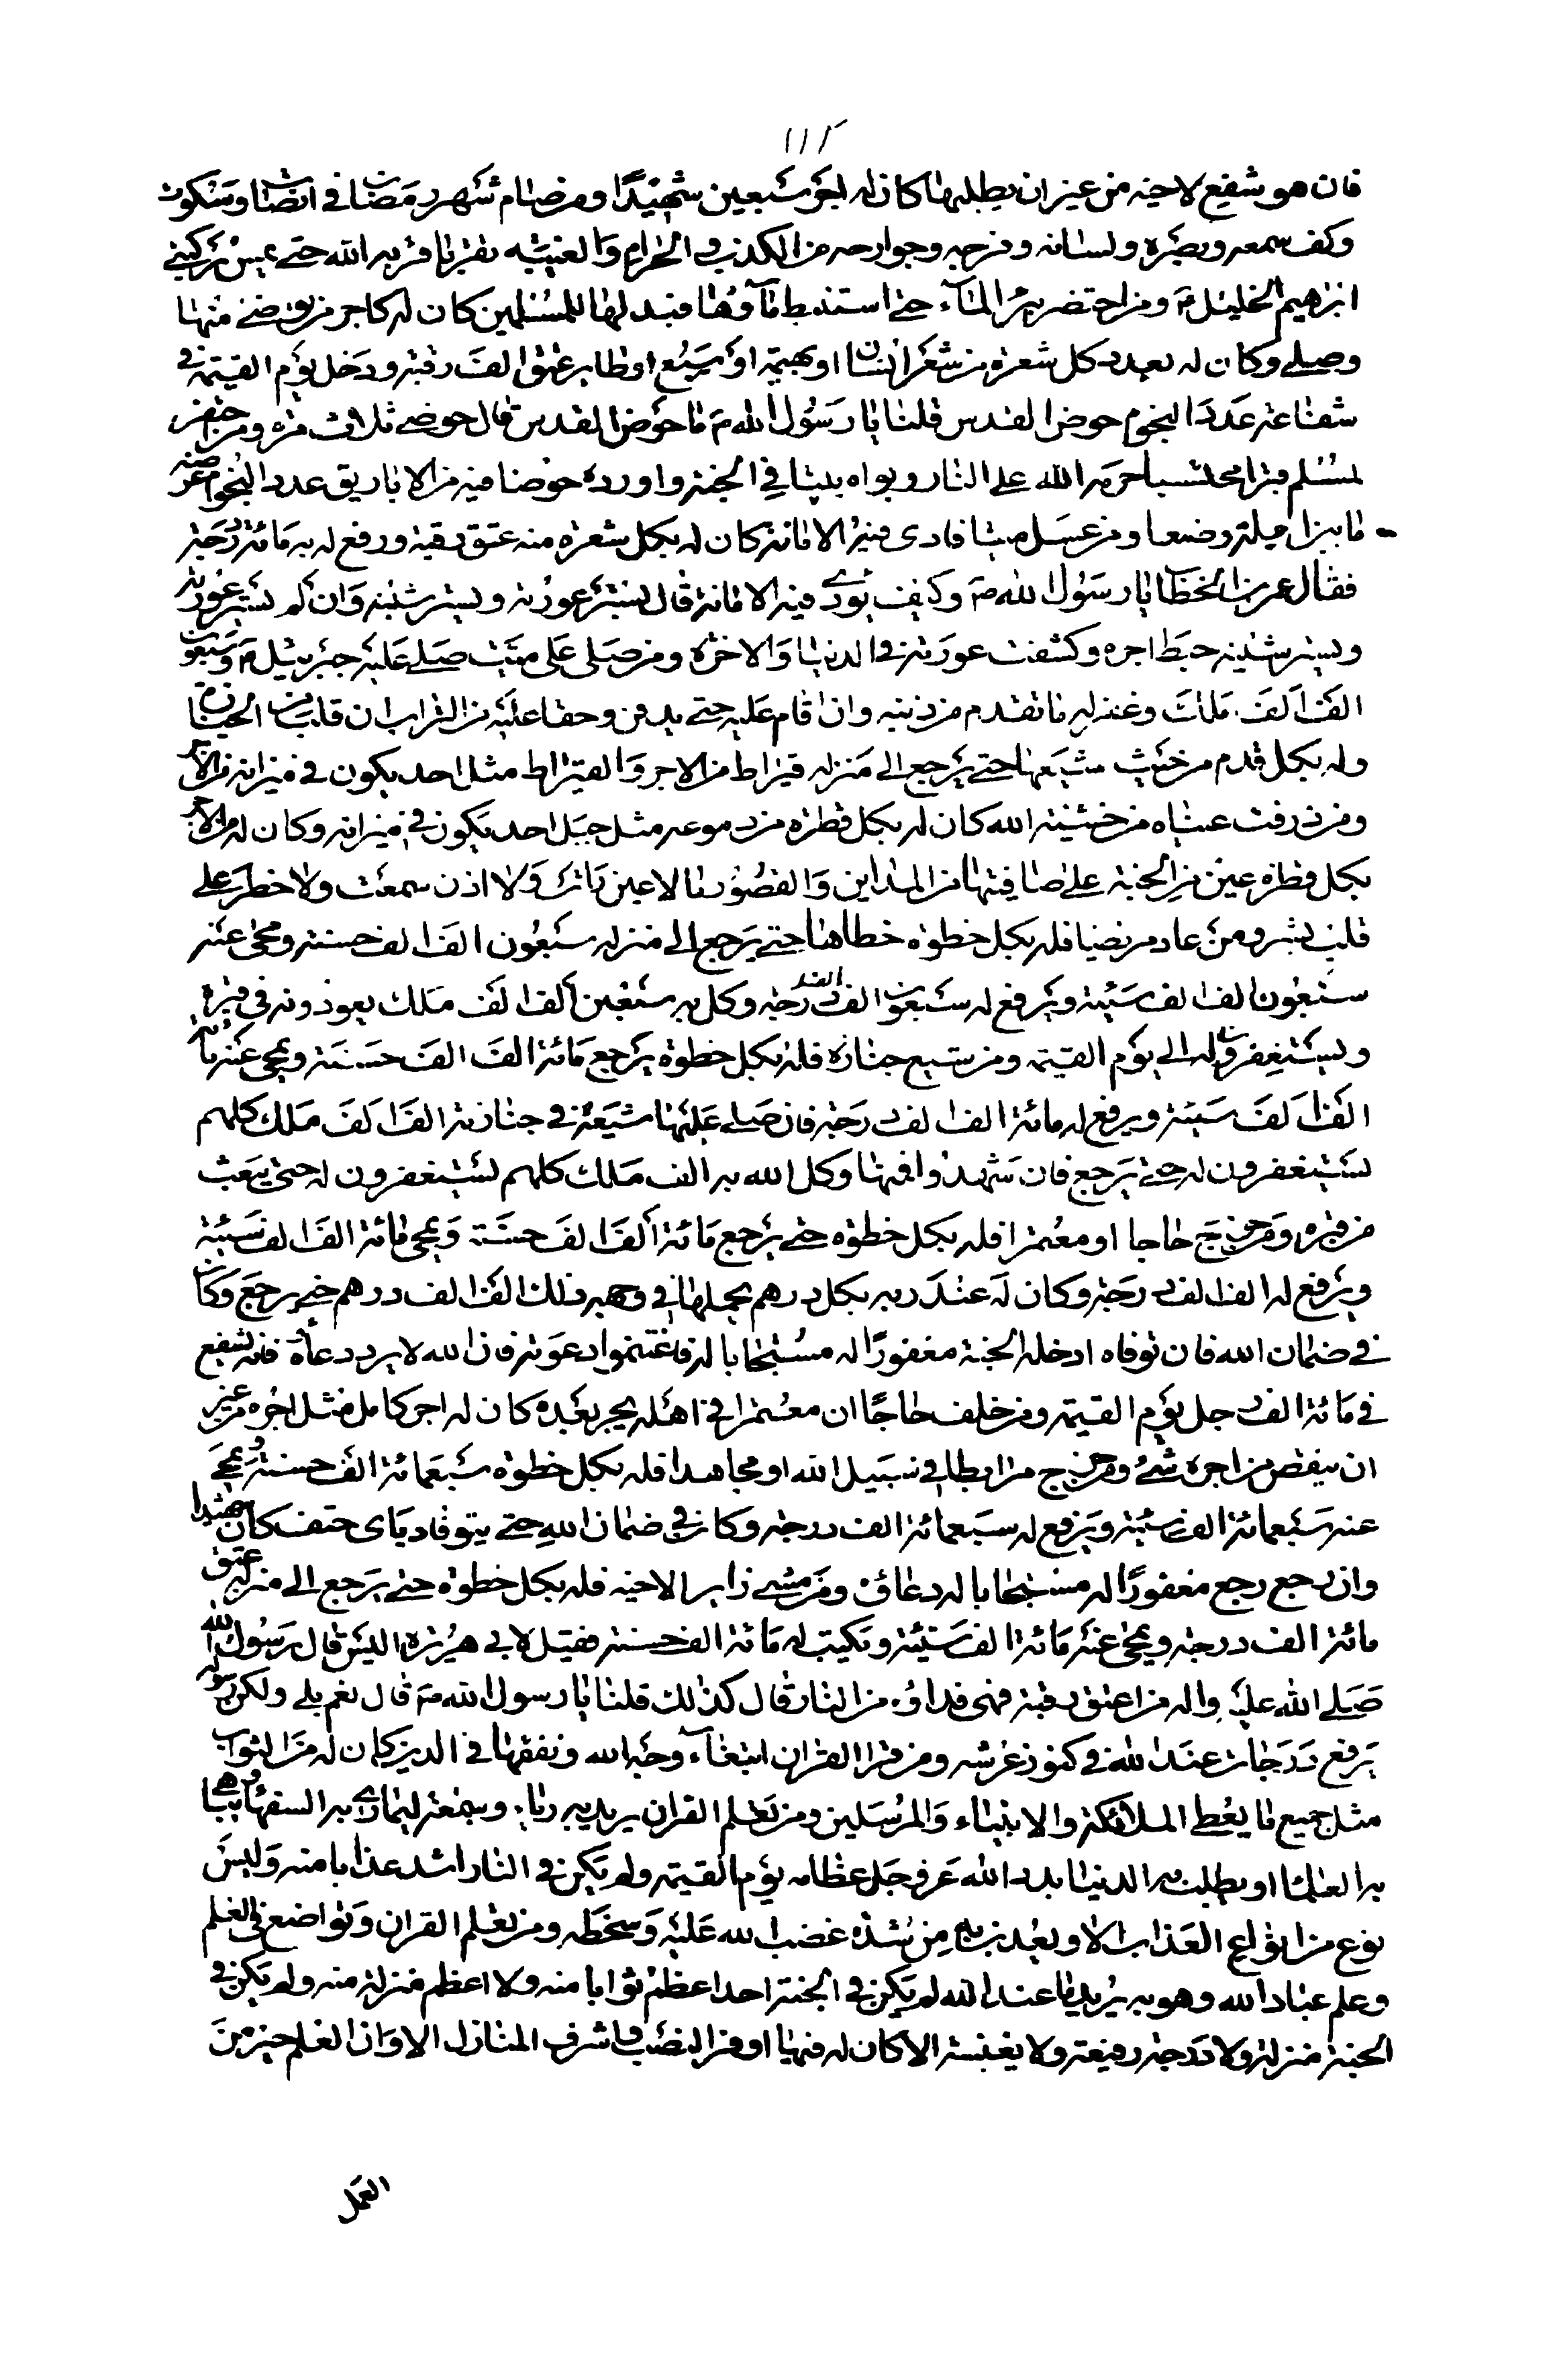 ١١١
فان هو شفيع لاخيه من غير ان يطلبها كان له اجر سبعين شهيدا ومن صام شهر رمضان في انصات وسكوت
وكف سمعه وبصره ولسانه وفرجه وجوارحه من الكذب والحرام والغيبة تقربا قربه الله حتى يمس ركبتي
ابرهيم الخليل ع ومن احتضر بئر الماء حتى استنبط ماؤها فبذلها للمسلمين كان له كاجر من توضئ منها
وصلى وكان له بعدد كل شعرة من شعر انسان او بهيمة او سبع او طاير عتق الف رقبة ودخل يوم القيمة في
شفاعته عدد النجوم حوض القدس قلنا يا رسول الله ص ما حوض القدس قال حوضي ثلاث مرة ومن حفر
لمسلم قبرا محتسبا حرمه الله على النار وبواه بيتا في الجنة واورده حوضا فيه من الاباريق عدد النجوم عرضه
ما بين ايلة وصنعا ومن غسل ميتا فادى فيه الامانة كان له بكل شعرة منه عتق رقبة ورفع له به مائة درجة
فقال عمر بن الخطاب يا رسول الله ص وكيف يؤدي فيه الامانة قال يستر عورته ويستر شينه وان لم يستر عورته
ويستر شينه حبط اجره وكشفت عورته في الدنيا والاخرة ومن صلى على ميت صلى عليه جبرئيل ع وسبعون
الف الف ملك وغفر له ما تقدم من ذنبه وان قام عليه حتى يدفن وحثا عليه من التراب انقلب من الجنازة
وله بكل قدم من حيث شيعها حتى يرجع الى منزله قيراط من الاجر والقيراط مثل احد يكون في ميزانه من الاجر
ومن ذرفت عيناه من خشية الله كان له بكل قطرة من دموعه مثل جبل احد يكون في ميزانه وكان له من الاجر
بكل قطرة عين من الجنة على حافيتها من المداين والقصور ما لا عين رات ولا اذن سمعت ولا خطر على
قلب بشر ومن عاد مريضا فله بكل خطوة خطاها حتى يرجع الى منزله سبعون الف الف حسنة ومحى عنه
سبعون الف الف سيئة ويرفع له سبعون الف الف درجة وكل به سبعين الف الف ملك يعودونه في قبره
ويستغفرون له الى يوم القيمة ومن شيع جنازة فله بكل خطوة يرجع مائة الف الف حسنة ويمحى عنه مائة
الف الف سيئة ويرفع له مائة الف الف درجة فان صلى عليها شيعه في جنازته الف الف ملك كلهم
يستغفرون له حتى يرجع فان شهد دفنها وكل الله به الف ملك كلهم يستغفرون له حتى يبعث
من قبره ومن خرج حاجا او معتمرا فله بكل خطوة حتى يرجع مائة الف الف حسنة ويمحى مائة الف الف سيئة
ويرفع له الف الف درجة وكان له عند ربه بكل درهم يحملها في وجهه ذلك الف الف درهم حتى يرجع وكان
في ضمان الله فان توفاه ادخله الجنة مغفورا له مستجابا له فاغتنموا دعوته فان الله لا يرد دعاؤه فانه يشفع
في مائة الف رجل يوم القيمة ومن خلف حاجا ان معتمرا في اهله بخير بعده كان له اجر كامل مثل اجره من غير
ان ينقص من اجره شئ ومن خرج مرابطا في سبيل الله او مجاهدا فله بكل خطوة سبعمائة الف حسنة ويمحى
عنه سبعمائة الف سيئة ويرفع له سبعمائة الف درجة وكان في ضمان الله حتى يتوفاه باى حتف كان شهيدا
وان رجع رجع مغفورا له مستجابا له دعاؤه ومن مشى زايرا لاخيه فله بكل خطوة حتى يرجع الى منزله عتق
مائة الف درجة ويمحى عنه مائة الف سيئة ويكتب له مائة الف حسنة فقيل لابي هريرة اليس قال رسول الله
صلى الله عليه واله من اعتق رقبة فهى فداؤه من النار قال كذلك قلنا يا رسول الله ص قال نعم بلى ولكن
يرفع درجات عند الله في كنوز عرشه ومن قرا القران ابتغاء وجه الله وتفقها في الدين كان له من الثواب
مثل جميع ما يعط الملائكة والانبياء والمرسلين ومن تعلم القران يريد به رياء وسمعة ليماري به السفهاء ويباهي
به العلماء او يطلب به الدنيا بدد الله عز وجل عظامه يوم القيمة ولم يكن في النار اشد عذابا منه وليس
نوع من انواع العذاب الا ويعذب به من شدة غضب الله عليه وسخطه ومن تعلم القران وتواضع في العلم
وعلم عباد الله وهو به يريد ما عند الله لم يكن في الجنة احد اعظم ثوابا منه ولا اعظم منزلة منه ولم يكن في
الجنة منزلة ولا درجة رفيعة ولا نفيسة الا كان له فيها اوفر النصيب واشرف المنازل الا وان العلم خير من
العمل